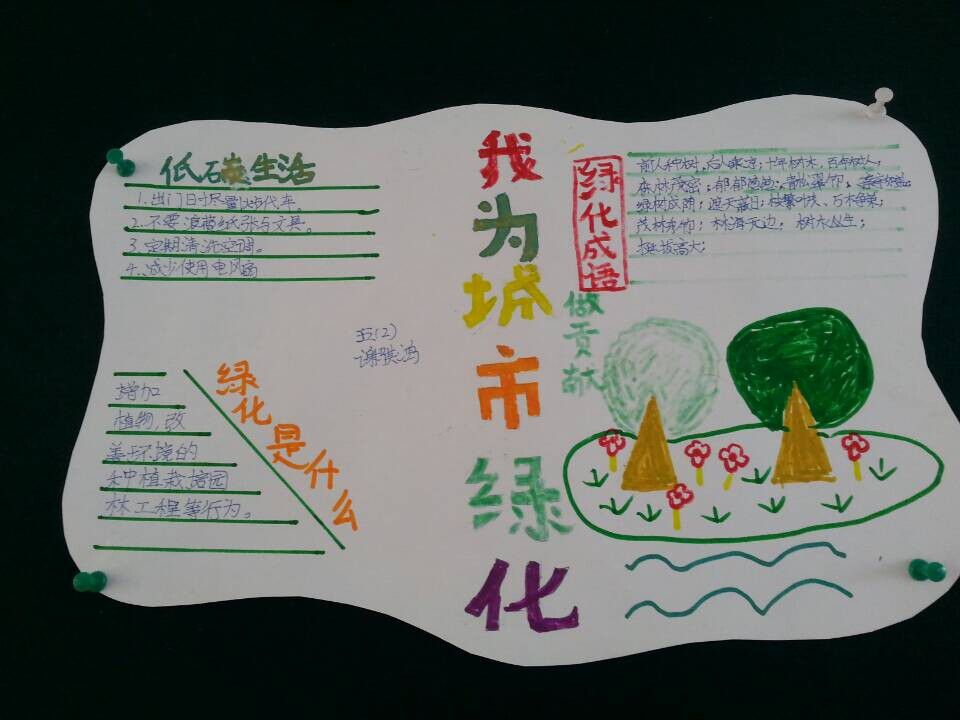 低碳生活
1.出门时尽量以步代车。
2.不要浪费纸张与文具。
3.定期清洗空调。
4.减少使用电风扇
五(2)
绿化是什么
增加
植物,改
善环境的
种植栽培园
林工程等行为。
我为城市绿化
做贡献
绿化成语
前人种树,后人乘凉;十年树木,百年树人;
森林茂密;郁郁葱葱;青松翠竹,
绿树成阴;遮天蔽日;枝繁叶茂、万木争荣;
茂林修竹;林海无边;树木丛生;
挺拔高大;